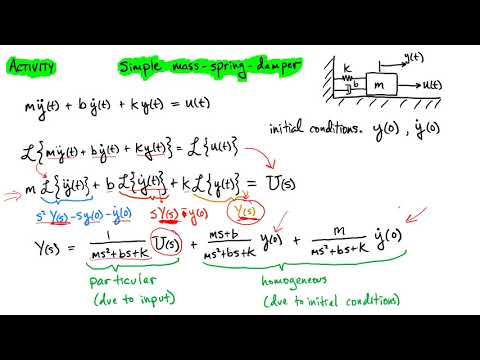 ACTIVITY
Simple mass-spring-damper
mÿ(t) + bẏ(t) + ky(t) = u(t)
k
b
m
y(t)
u(t)
initial conditions. y(0), ẏ(0)
ℒ{mÿ(t) + bẏ(t) + ky(t)} = ℒ{u(t)}
m ℒ{ÿ(t)} + b ℒ{ẏ(t)} + k ℒ{y(t)} = U(s)
s²Y(s) - sy(0) - ẏ(0) sY(s) - y(0) Y(s)
Y(s) = 1/(ms²+bs+k) U(s) + (ms+b)/(ms²+bs+k) y(0) + m/(ms²+bs+k) ẏ(0)
particular
(due to input)
homogeneous
(due to initial conditions)